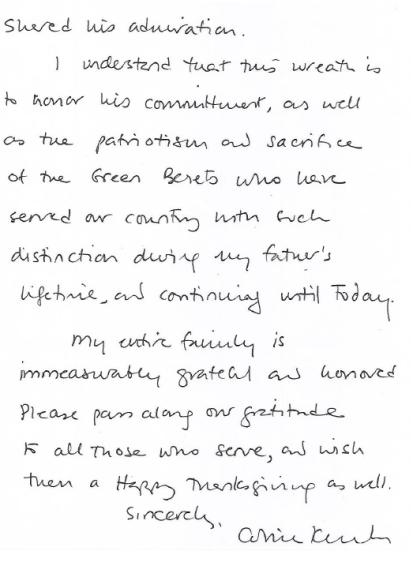 shared his admiration.
I understand that this wreath is
to honor his committment, as well
as the patriotism and sacrifice
of the Green Berets who have
served our country with such
distinction during my father's
lifetime, and continuing until Today.
My entire family is
immeasurably grateful and honored
Please pass along our gratitude
to all those who serve, and wish
them a Happy Thanksgiving as well.
Sincerely,